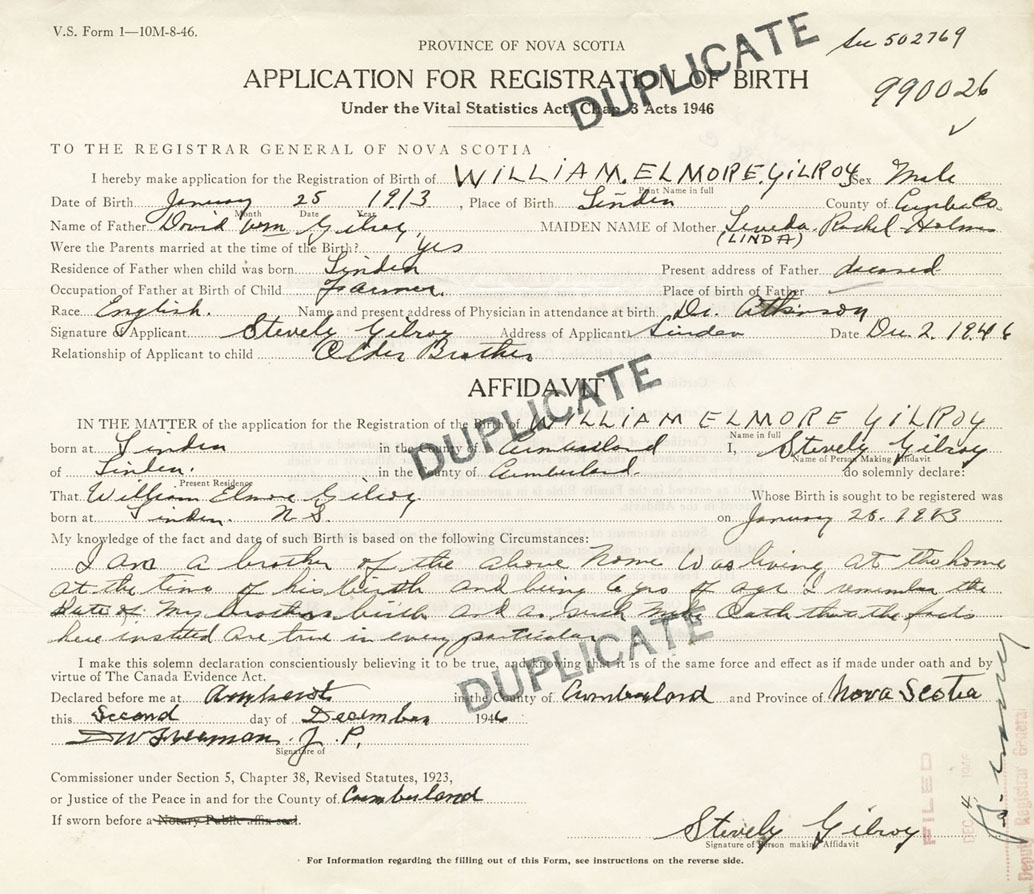 V.S. Form 1—10M-8-46.
PROVINCE OF NOVA SCOTIA
See 502769
APPLICATION FOR REGISTRATION OF BIRTH
990026
Under the Vital Statistics Act, Chap. 3 Acts 1946
DUPLICATE
TO THE REGISTRAR GENERAL OF NOVA SCOTIA
I hereby make application for the Registration of Birth of WILLIAM. ELMORE. GILROY Sex Male
Print Name in full
Date of Birth January 25 1913, Place of Birth Linden County of Cumb Co.
Month Date Year
Name of Father David Vern Gilroy. MAIDEN NAME of Mother Leveda Rachel Holmes
(LINDA)
Were the Parents married at the time of the Birth? Yes
Residence of Father when child was born Linden Present address of Father deceased
Occupation of Father at Birth of Child Farmer. Place of birth of Father
Race English. Name and present address of Physician in attendance at birth Dr. Atkinson
Signature of Applicant Stevely Gilroy Address of Applicant Linden Date Dec. 2. 1946
Relationship of Applicant to child Older Brother
AFFIDAVIT
DUPLICATE
IN THE MATTER of the application for the Registration of the Birth of WILLIAM ELMORE GILROY
Name in full
born at Linden in the County of Cumberland I, Stevely Gilroy
Name of Person Making Affidavit
of Linden. in the County of Cumberland. do solemnly declare:
Present Residence
That William Elmore Gilroy. Whose Birth is sought to be registered was
born at Linden. N.S. on January 1913
My knowledge of the fact and date of such Birth is based on the following Circumstances:
I am a brother of the above Name Was living at the home
at the time of his birth and being 6 yrs of age I remember the
date of My Brothers birth and as such Make Oath that the facts
here instited are true in every particular
DUPLICATE
I make this solemn declaration conscientiously believing it to be true, and knowing that it is of the same force and effect as if made under oath and by
virtue of The Canada Evidence Act.
Declared before me at Amherst in the County of Cumberland and Province of Nova Scotia
this Second day of December 1946
DW Freeman. J. P.
Signature of
Commissioner under Section 5, Chapter 38, Revised Statutes, 1923,
or Justice of the Peace in and for the County of Cumberland
If sworn before a Notary Public affix seal.
FILED
DEC 4
Deputy Registrar General
Stevely Gilroy
Signature of Person making Affidavit
For Information regarding the filling out of this Form, see instructions on the reverse side.